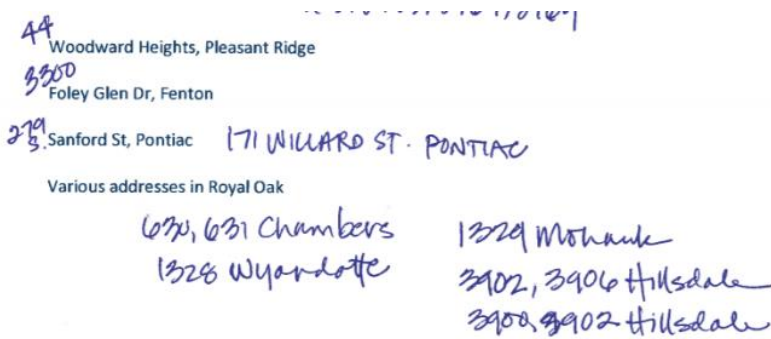 44 Woodward Heights, Pleasant Ridge
3300 Foley Glen Dr, Fenton
279 S. Sanford St, Pontiac 171 WILLARD ST. PONTIAC
Various addresses in Royal Oak
630, 631 Chambers 1329 Mohawk
1328 Wyandotte 3902, 3906 Hillsdale
3900, 3902 Hillsdale